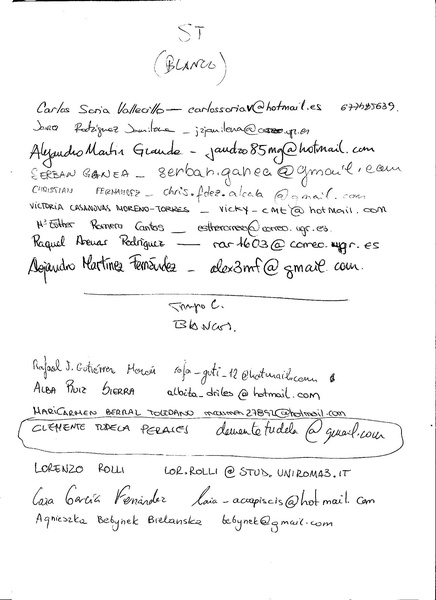 ST
(BLANCO)
Carlos Soria Vallecillo — carlossoriav@hotmail.es
Rodriguez
Alejandro Martin Grande — jandro85mg@hotmail.com
SERBAN GANEA — serban.ganea@gmail.com
CHRISTIAN FERNANDEZ — chris.fdez.alcala@gmail.com
VICTORIA CASANOVAS MORENO-TORRES — vicky-cmt@hotmail.com
Mª Esther Romero Cantos — estheromeo@correo.ugr.es
Raquel Arenas Rodríguez — rar1603@correo.ugr.es
Alejandro Martínez Fernández — alex3mf@gmail.com.
Grupo C.
BLANCOS.
Rafael J. Gutiérrez rafa_guti_12@hotmail.com
ALBA RUIZ SIERRA albita_driles@hotmail.com
MARICARMEN BERNAL TOLEDANO
CLEMENTE TUDELA PERALES clementetudela@gmail.com
LORENZO ROLLI LOR.ROLLI@STUD.UNIROMA3.IT
García Fernández @hotmail.com
Agnieszka Bebynek Bielanska bebynek@gmail.com